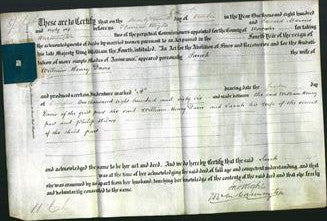 These are to Certify that on the day of in the Year One thousand eight hundred
and sixty six before us
two of the perpetual Commissioners appointed for the County of for taking
the acknowledgments of deeds by married women pursuant to an Act passed in the Fourth Year of the reign of
his late Majesty King William the Fourth, intituled "An Act for the Abolition of Fines and Recoveries and for the Substitu-
tion of more simple Modes of Assurance," appeared personally Sarah the wife of
William Henry Davis
and produced a certain Indenture marked "A" bearing date the day of
One thousand eight hundred and sixty six and made between the said William Henry
Davis of the first part the said William Henry Davis and Sarah his wife of the second
part and Philip of
the third part
and acknowledged the same to be her act and deed. And we do hereby Certify that the said Sarah
was at the time of her acknowledging the said deed of full age and competent understanding, and that
she was examined by us apart from her husband, touching her knowledge of the contents of the said deed and that she freely
and voluntarily consented to the same.